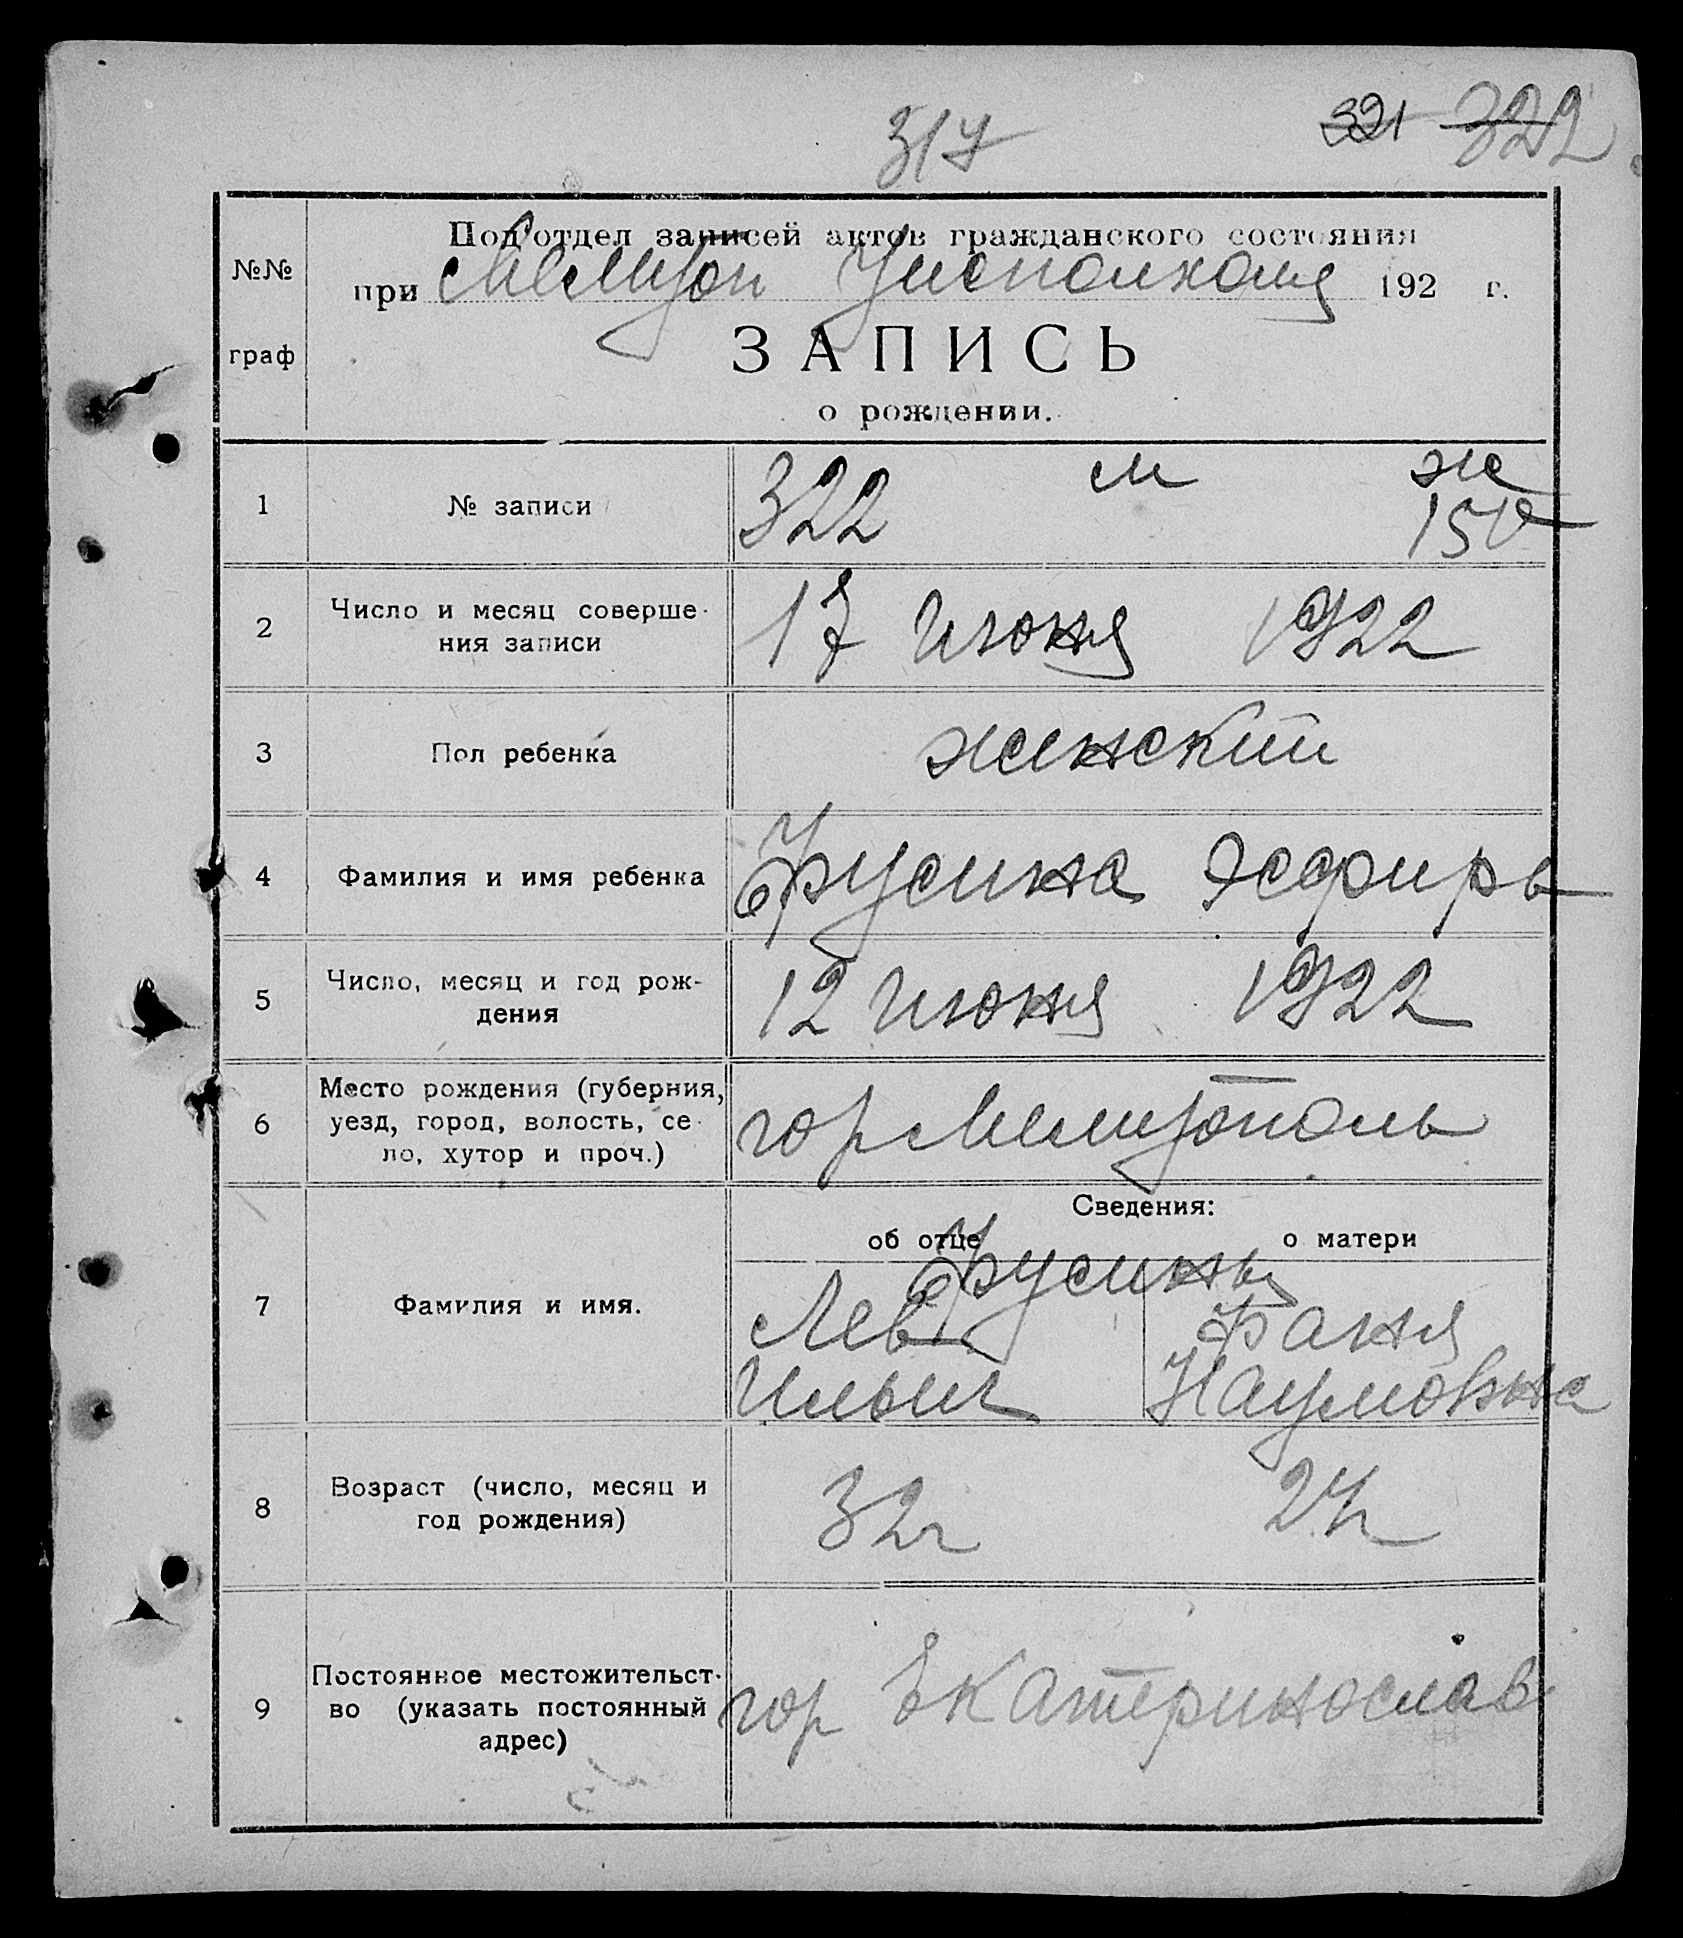 317 321 322
Под'отдел записей актов гражданского состояния
при Мелитоп Уисполкома 192 г.
ЗАПИСЬ
о рождении.
№№
граф
1 № записи 322 м ж
150
2 Число и месяц соверше-
ния записи
17 июня 1922
3 Пол ребенка женский
4 Фамилия и имя ребенка Фрусина Эсфирь
5 Число, месяц и год рож-
дения
12 июня 1922
6 Место рождения (губерния,
уезд, город, волость, се-
ло, хутор и проч.)
гор Мелитополь
Сведения:
об отце о матери
7 Фамилия и имя.
Фрусины
Лев Фаня
Ильич Наумовна
8 Возраст (число, месяц и
год рождения)
32г 27л
9 Постоянное местожительст-
во (указать постоянный
адрес)
гор Екатеринослав